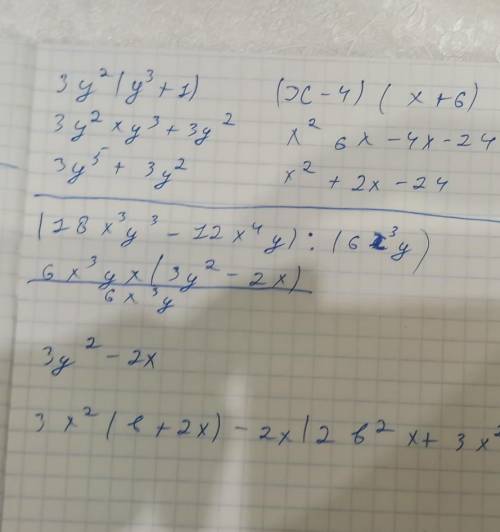 3y²(y³+1)
3y² x y³ + 3y²
3y⁵ + 3y²
(x-4) ( x+6)
x² 6x - 4x - 24
x² + 2x - 24
(18x³y³ - 12x⁴y) : (6x³y)
6x³y x (3y² - 2x)
6x³y
3y² - 2x
3x² (в + 2x) - 2x(2в²x + 3x²